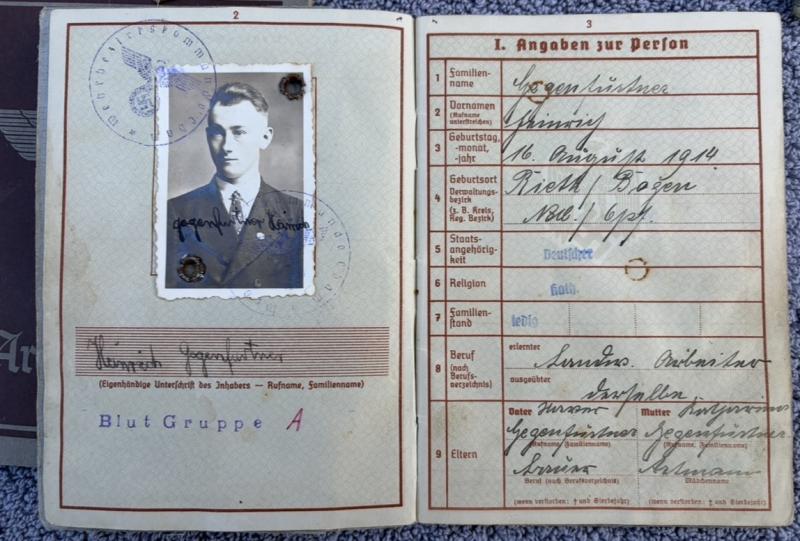 2
Gegenfurtner Heinrich
Heinrich Gegenfurtner
(Eigenhändige Unterschrift des Inhabers — Rufname, Familienname)
Blut Gruppe A
3
I. Angaben zur Person
1 Familien-
name
Gegenfurtner
2 Vornamen
(Rufname
unterstreichen)
Heinrich
3 Geburtstag,
-monat,
-jahr
16. August 1914
4 Geburtsort
Verwaltungs-
bezirk
(z. B. Kreis,
Reg. Bezirk)
5 Staats-
angehörig-
keit
Deutscher
6 Religion
kath.
7 Familien-
stand
ledig
8 Beruf
(nach
Berufs-
verzeichnis)
erlernter
Landw. Arbeiter
ausgeübter
derselbe
9 Eltern
Vater Xaver
Gegenfurtner
(Rufname, Familienname)
Beruf (nach Berufsverzeichnis)
(wenn verstorben: † und Sterbejahr)
Mutter Katharina
Gegenfurtner
(Rufname, Familienname)
Artmann
Mädchenname
(wenn verstorben: † und Sterbejahr)